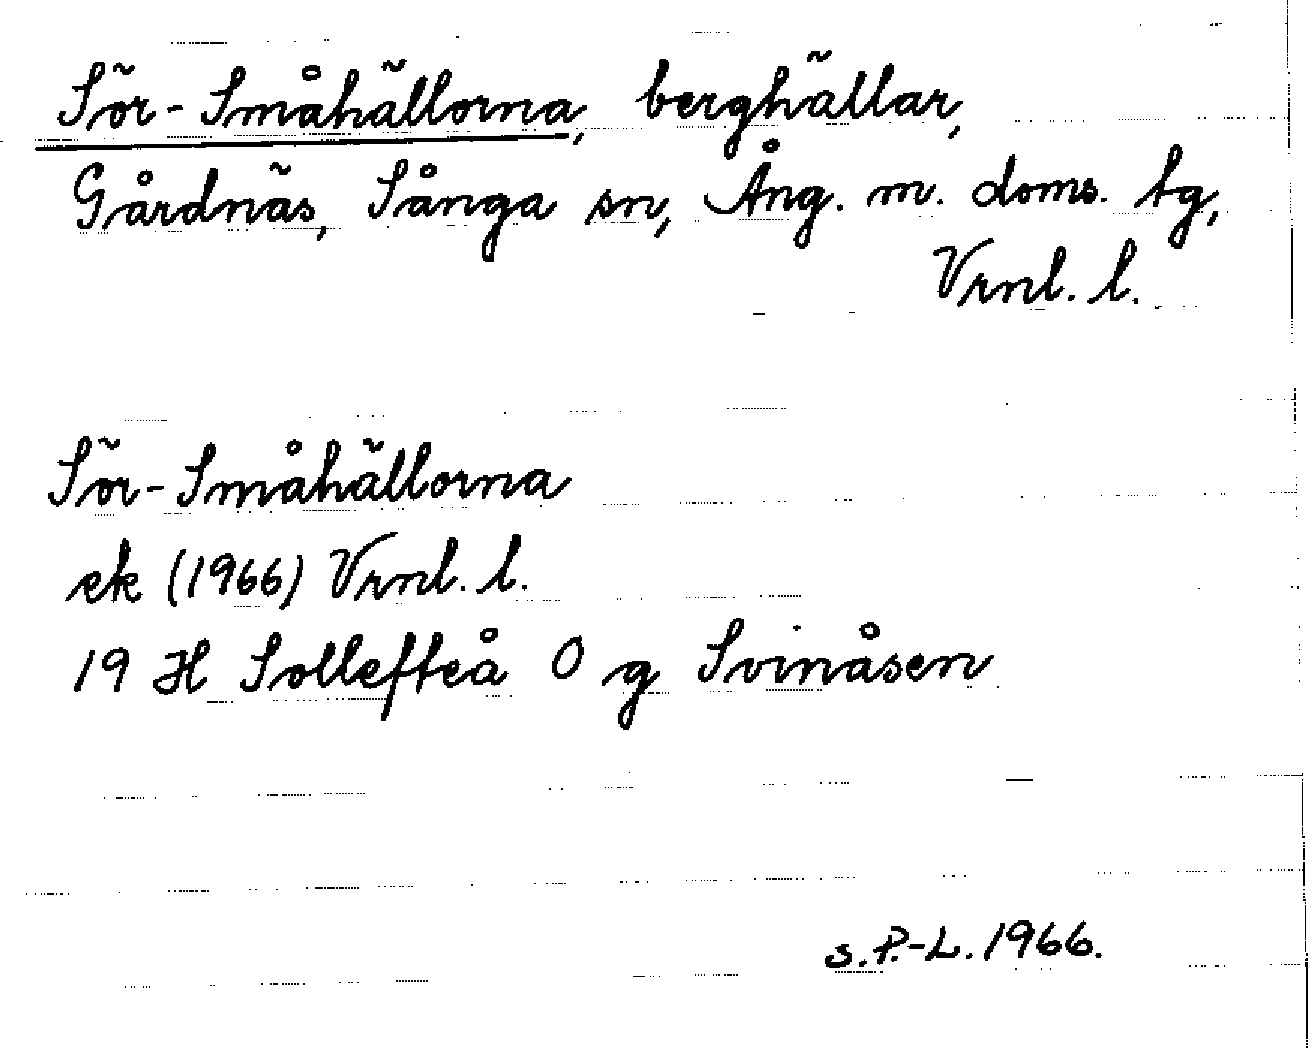 Sör-Småhällorna, berghällar,
Gårdnäs, Sånga sn, Ång. m. doms. tg,
Vrnl. l.
Sör-Småhällorna
ek (1966) Vrnl. l.
19 H Sollefteå O g Svinåsen
s.P.-L. 1966.